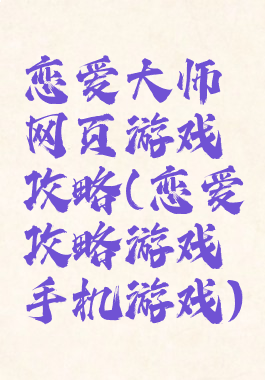 恋爱大师
网页游戏
攻略(恋爱
攻略游戏
手机游戏)